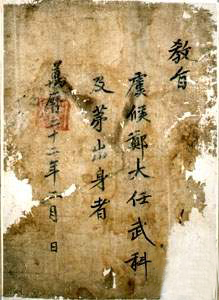 敎旨
虞候鄭大任武科
及第出身者
萬曆二十二年二月　日